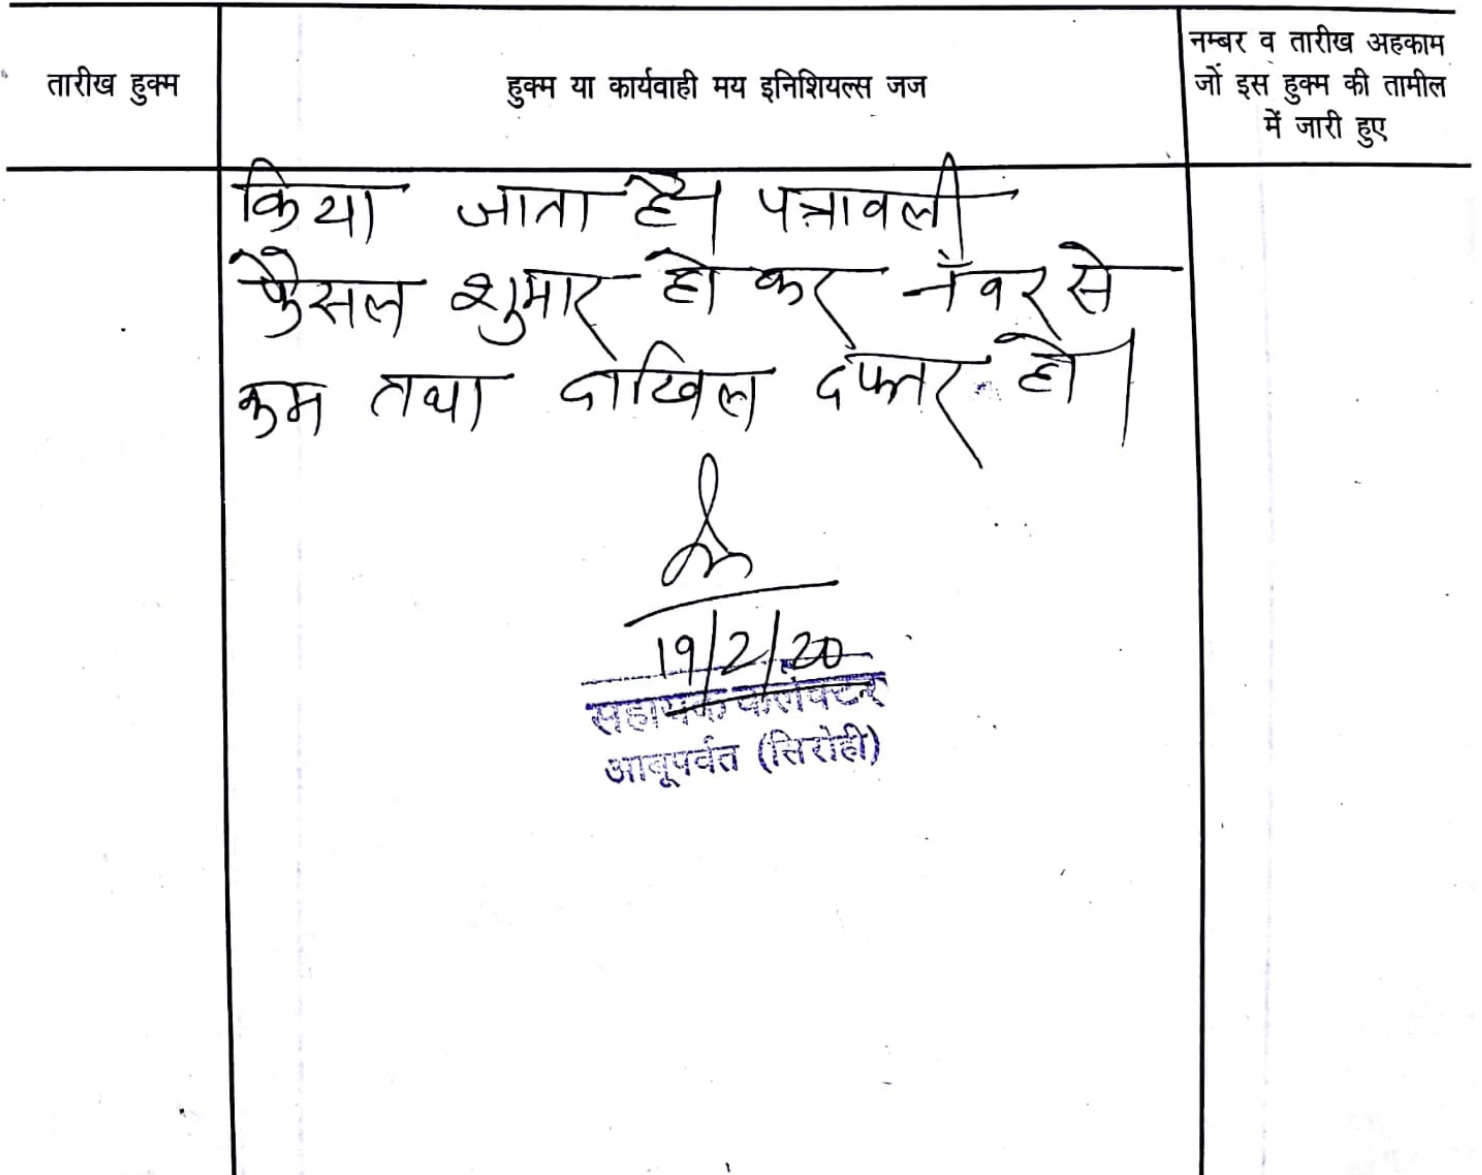 तारीख हुक्म
हुक्म या कार्यवाही मय इनिशियल्स जज
नम्बर व तारीख अहकाम
जों इस हुक्म की तामील
में जारी हुए
किया जाता है। पत्रावली
फैसल शुमार हो कर नंबर से
कम तथा दाखिल दफ्तर हो।
19/2/20
सहायक कलेक्टर
आबूपर्वत (सिरोही)